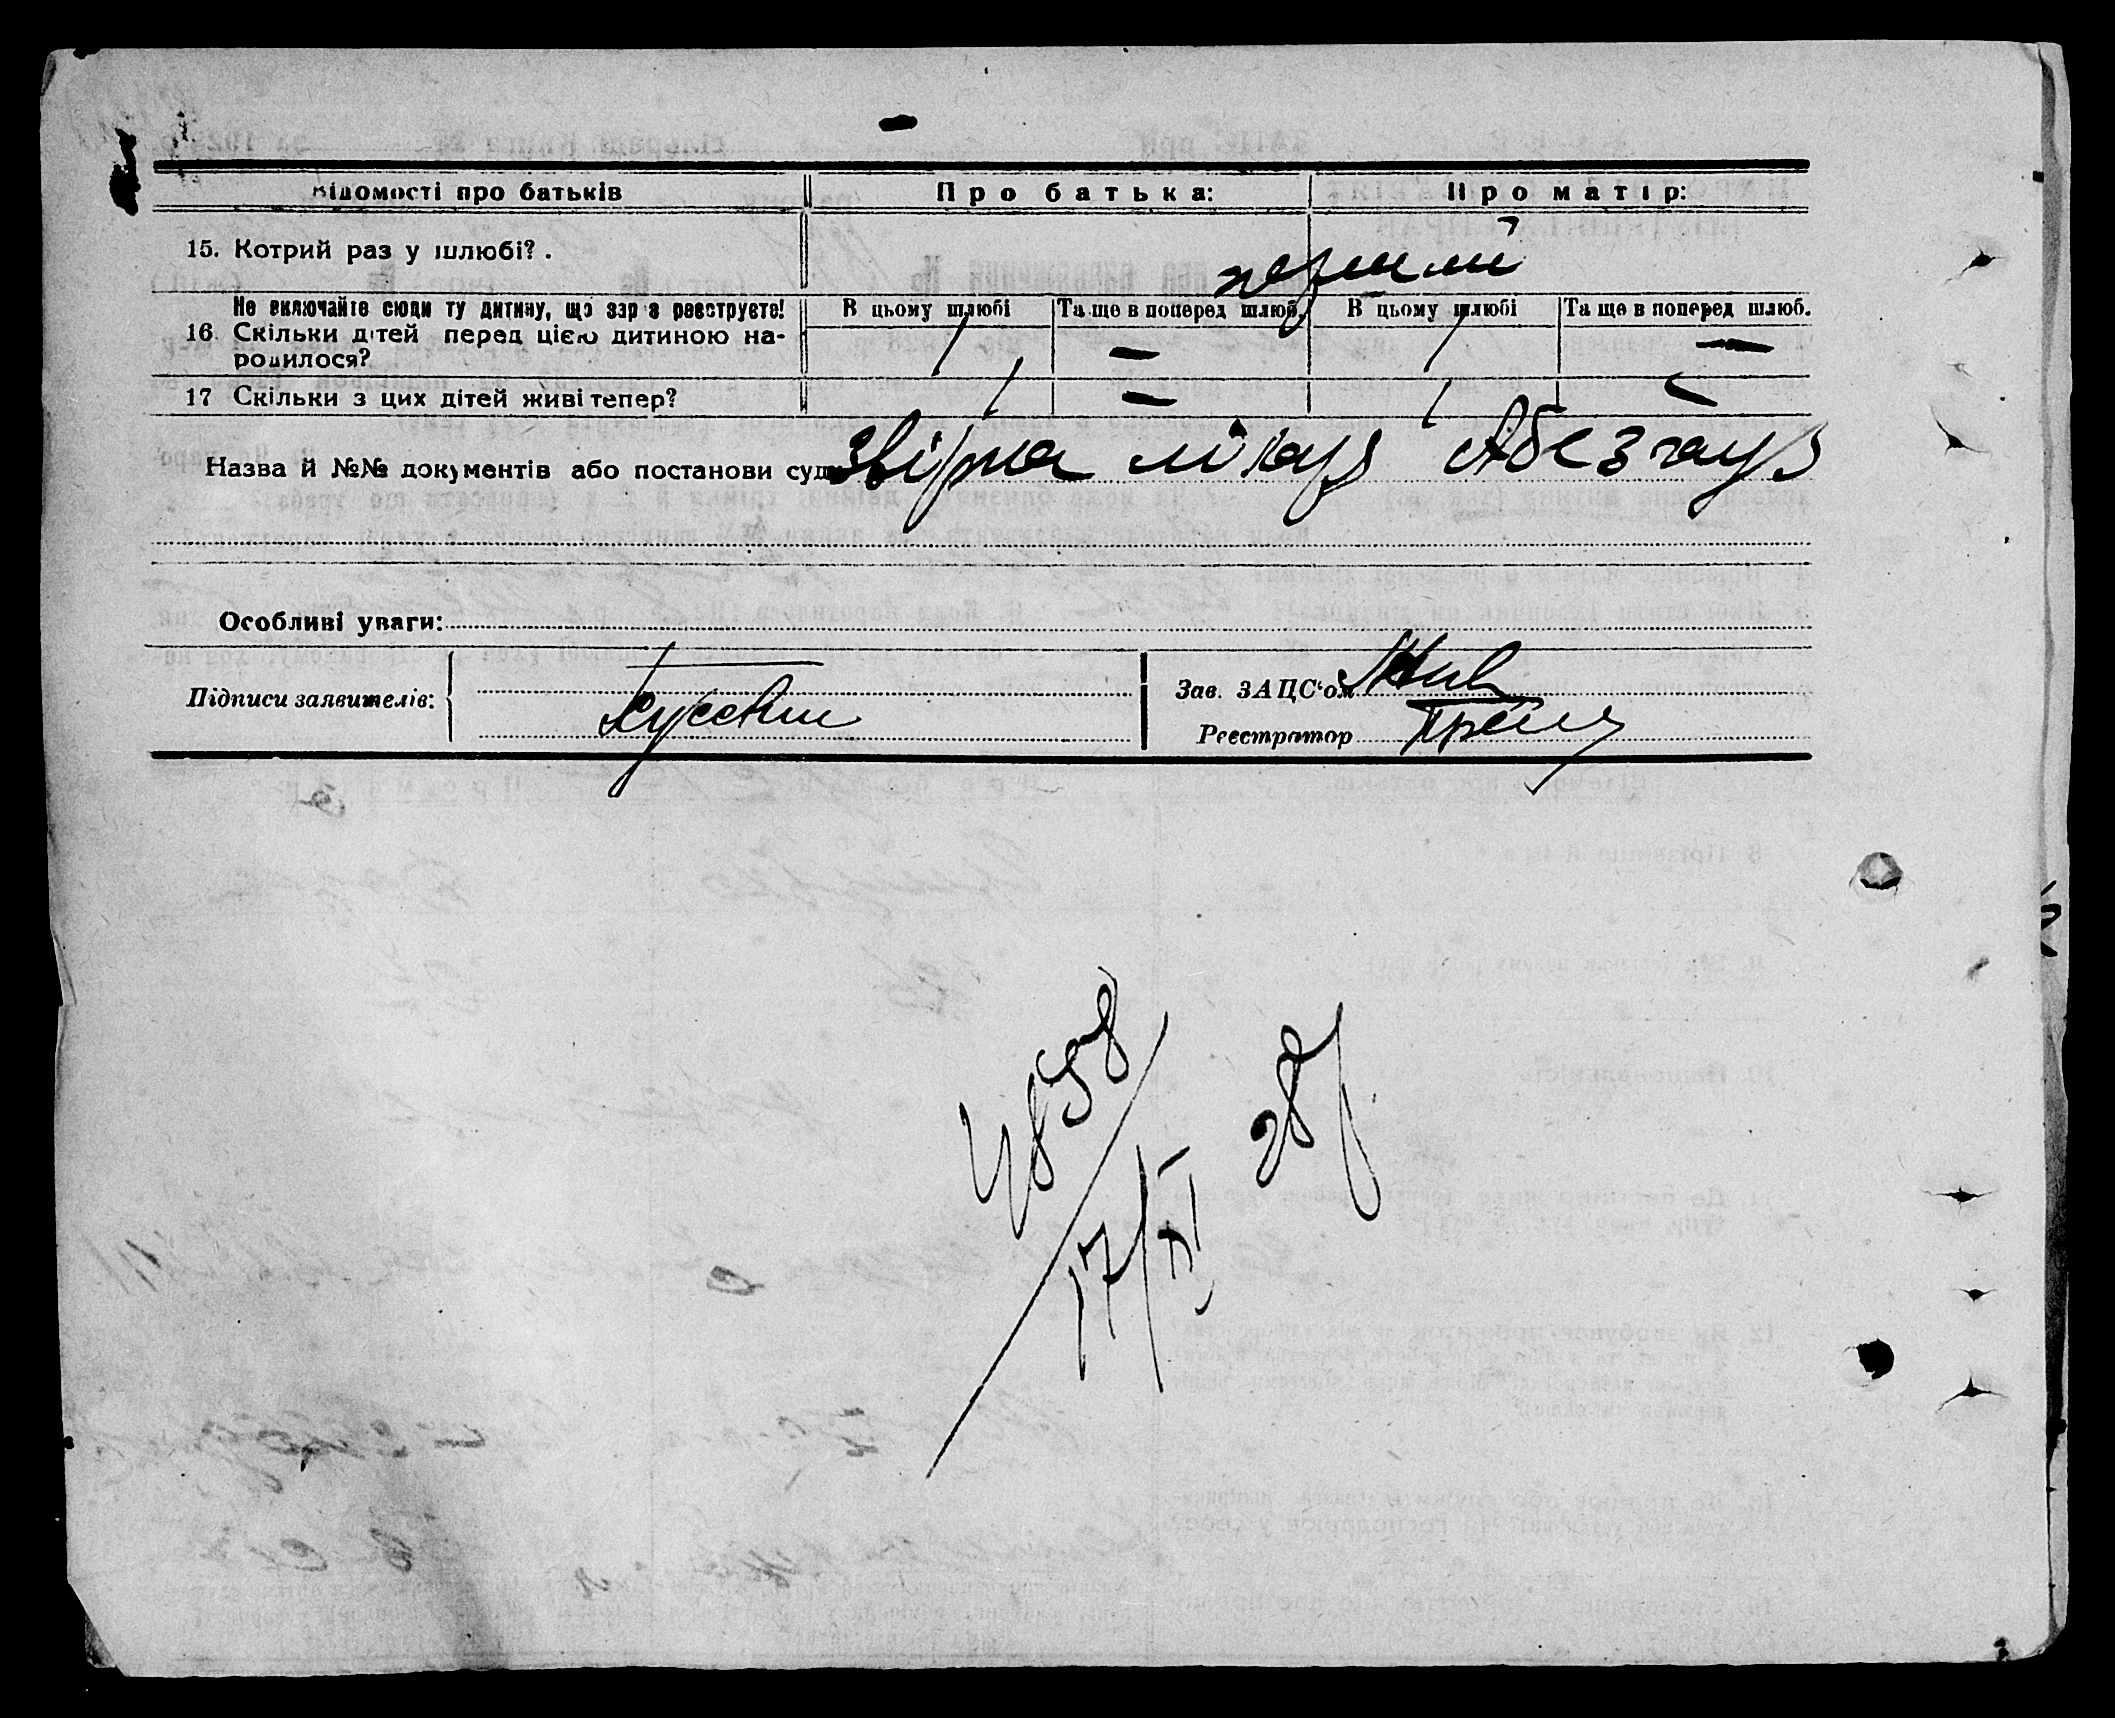 Відомості про батьків Про батька: Про матір:
15. Котрий раз у шлюбі? . перший
Не включайте сюди ту дитину, що зараз реєструєте! В цьому шлюбі Та ще в поперед шлюб. В цьому шлюбі Та ще в поперед шлюб.
16. Скільки дітей перед цією дитиною на- / — / —
родилося?
17 Скільки з цих дітей живі тепер? / — / —
Назва й №№ документів або постанови суду
Особливі уваги:
Підписи заявителів: Зав. ЗАЦС'ом
Реєстратор
4858
17/XI 28р